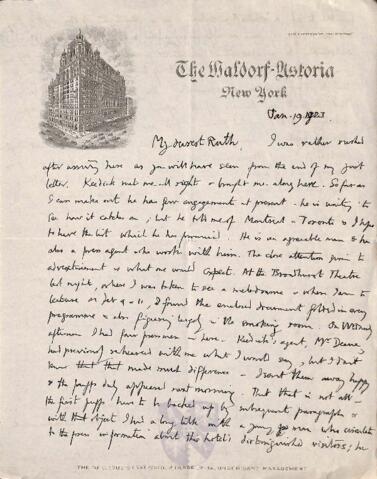 The Waldorf-Astoria
New York
Jan. 19. 1923
My dearest Ruth, I was rather rushed
after arriving here as you will have seen from the end of my last
letter. Keedick met me all right & brought me along here. So far as
I can make out he has few engagements at present - he is waiting to
see how it catches on; but he told me of Montreal & Toronto & I hope
to have the list which he has promised. He is an agreeable man & has
also a press agent who works with him. The close attention given to
advertisement is what one would expect. At the Broadhurst Theatre
last night, where I was taken to see a melodrama - where I am to
lecture on Feb 4 - I found the enclosed document folded in every
programme & also figuring largely in the smoking room. On
afternoon I had four pressmen in here. Keedick's agent, Mr
had previously rehearsed with me what I would say, but I don't
know that that made much difference - I sent them away happy
& the puffs duly appeared next morning. But that is not all -
the first puffs have to be backed up by subsequent paragraphs &
with that object I had a long talk with a young man who circulates
to the press information about this hotel's distinguished visitors; he